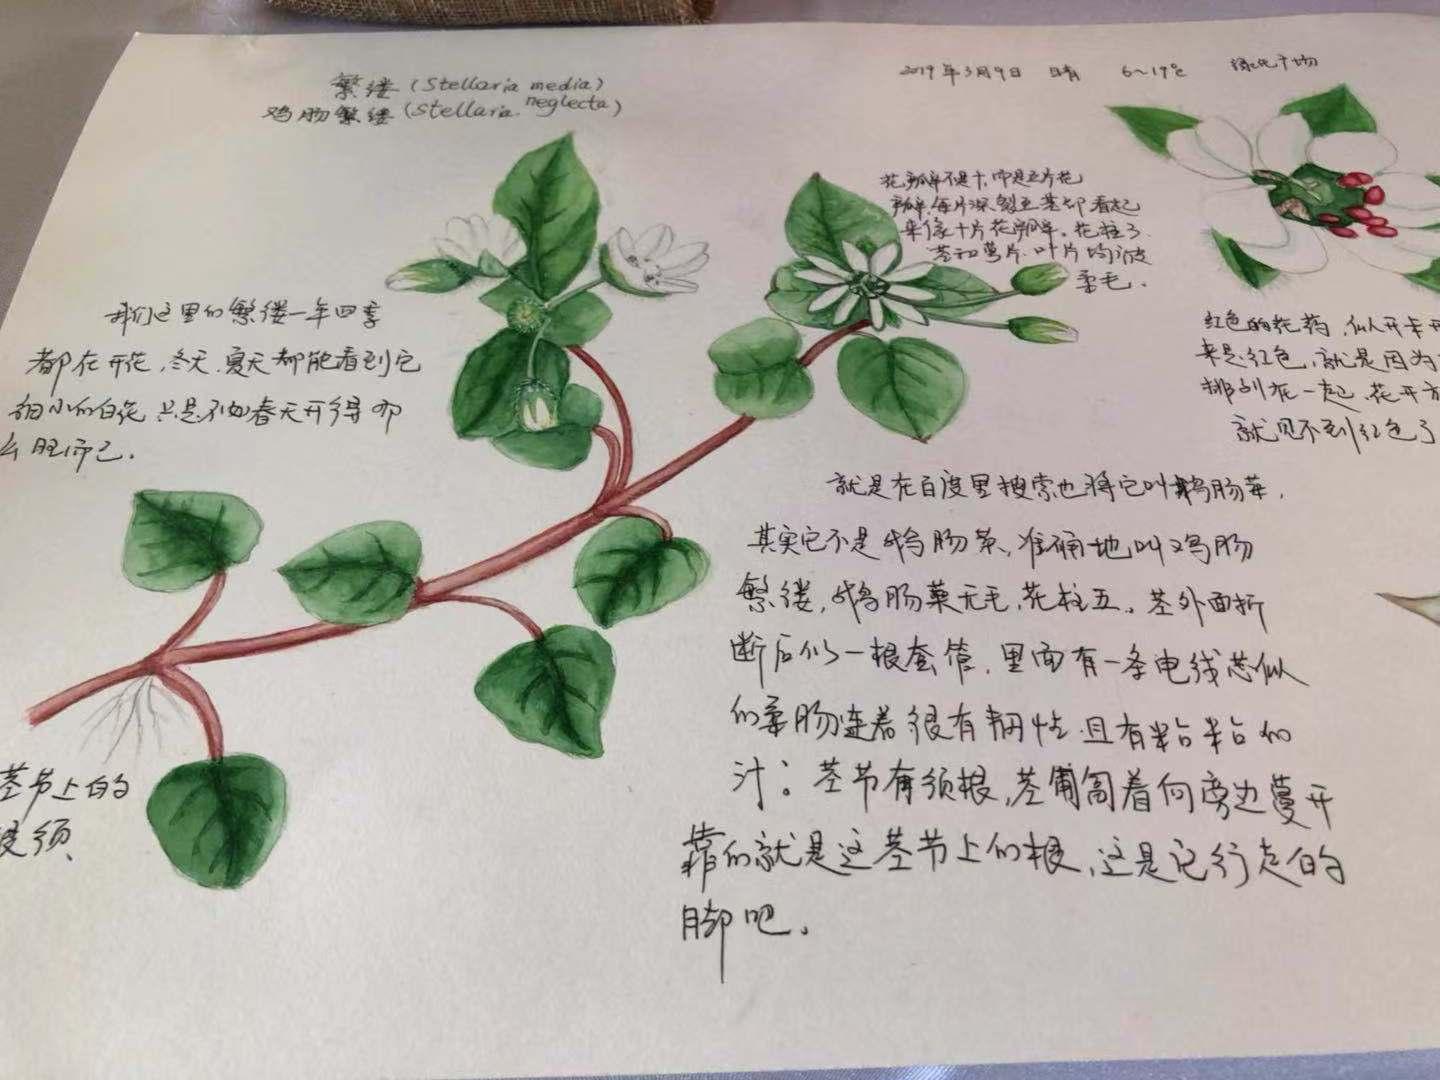 繁缕(Stellaria media)
鸡肠繁缕(Stellaria neglecta)
2019年3月9日 晴 6~19℃ 绿化广场
花瓣不是十,而是五片花
瓣,每片深裂至基部看起
来像十片花瓣。花柱3.
茎和萼片.叶片均被
柔毛.
我们这里的繁缕一年四季
都在开花,冬天.夏天都能看到它
细小的白花只是不如春天开得那
么旺而已.
红色的花药,似开未开
来是红色,就是因为
排列在一起,花开
就见不到红色了
就是在百度里搜索也将它叫鹅肠菜.
其实它不是鹅肠菜,准确地叫鸡肠
繁缕,鹅肠菜无毛,花柱五.茎外面折
断后似一根套管,里面有一条电线芯似
的柔肠连着很有韧性且有粘粘的
汁。茎节有须根,茎匍匐着向旁边蔓开
靠的就是这茎节上的根,这是它行走的
脚吧.
茎节上的
须.